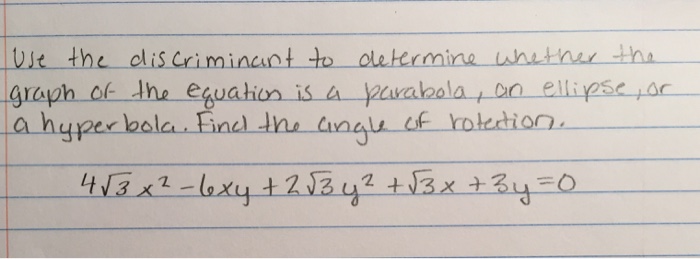 Use the discriminant to determine whether the
graph of the equation is a parabola, an ellipse, or
a hyperbola. Find the angle of rotation.
4√3 x² - 6xy + 2√3 y² + √3x + 3y = 0